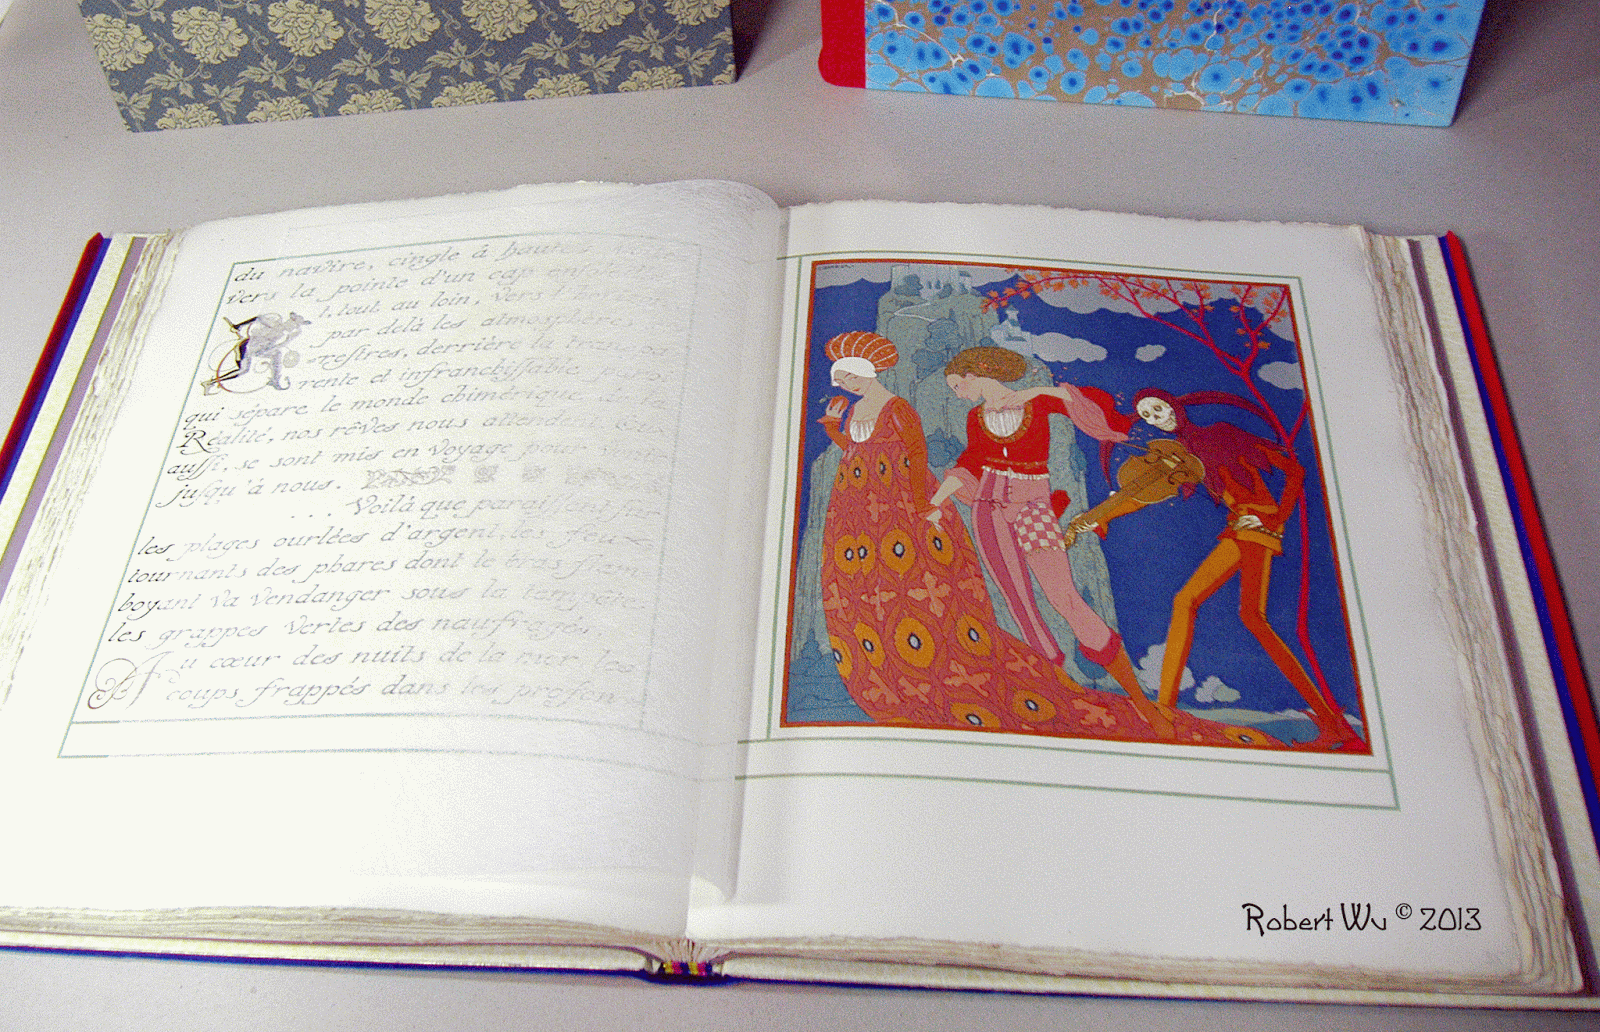 du navire, cingle à hautes
vers la pointe d'un cap
t, tout au loin, vers l'horizon
par delà les atmosphères
restres, derrière la
rente et infranchissable
qui sépare le monde chimérique de la
Réalité, nos rêves nous attendent. Eux
aussi, se sont mis en voyage pour
jusqu'à nous.
... Voilà que paraissent sur
les plages ourlées d'argent, les feux
tournants des phares dont le bras flam-
boyant va vendanger sous la tempête
les grappes vertes des naufragés.
Au cœur des nuits de la mer les
coups frappés dans les profon-
Robert Wu © 2013